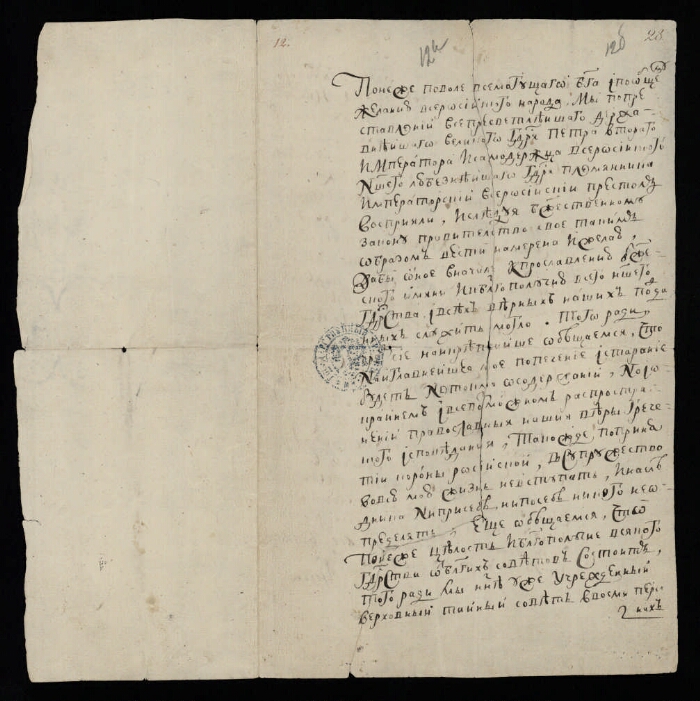 12.
12а
12б
23
Понеже поволе всемогущаго бга iпоѡбще
желанию всеросиiского народа. Мы попре
ставлениi всепресветлѣйшаго держа
внѣйшаго великого гдрѧ ПЕТРА второго
IМПЕратора Исамодержца Всеросиiского
Ншего любезнѣйшаго гдрѧ племянника
Императорскиi всеросиiскиi престолъ
восприяли, Ислѣдуя бжественному
закону правителство свое такимъ
ѡбразомъ вести намерена Ижелаю,
Дабы ѡное вначале кпрославлению бже
ского имяни Иквлгополучию всего ншего
гдрства iвсѣхъ вѣрныхъ нашихъ подда
ныхъ служить могло. Того ради,
чрезъ сие наикрѣпчайше ѡбѣщаемся, Что
Наiглавнейшее мое попечение iстарание
будетъ нетокмо ѡсодержаниi, Ноiѡ
краiнемъ iвсевозможномъ распростра
нениi православныя нашия вѣры грече
ского iсповедания, Такожде поприня
тиi короны росиiской, Всупружество
вовсю мою жизнь невступать, Инаслѣ
дника ниприсебѣ, нипосебѣ никого неѡ
пределять. Еще ѡбѣщаемся, Что
Понеже цѣлость Iблгополучие всякого
гдрства ѿблгихъ совѣтовъ состоитъ,
Того ради Мы ннѣ уже учрежденный
верховный тайный совѣтъ ввосми пер
сонахъ